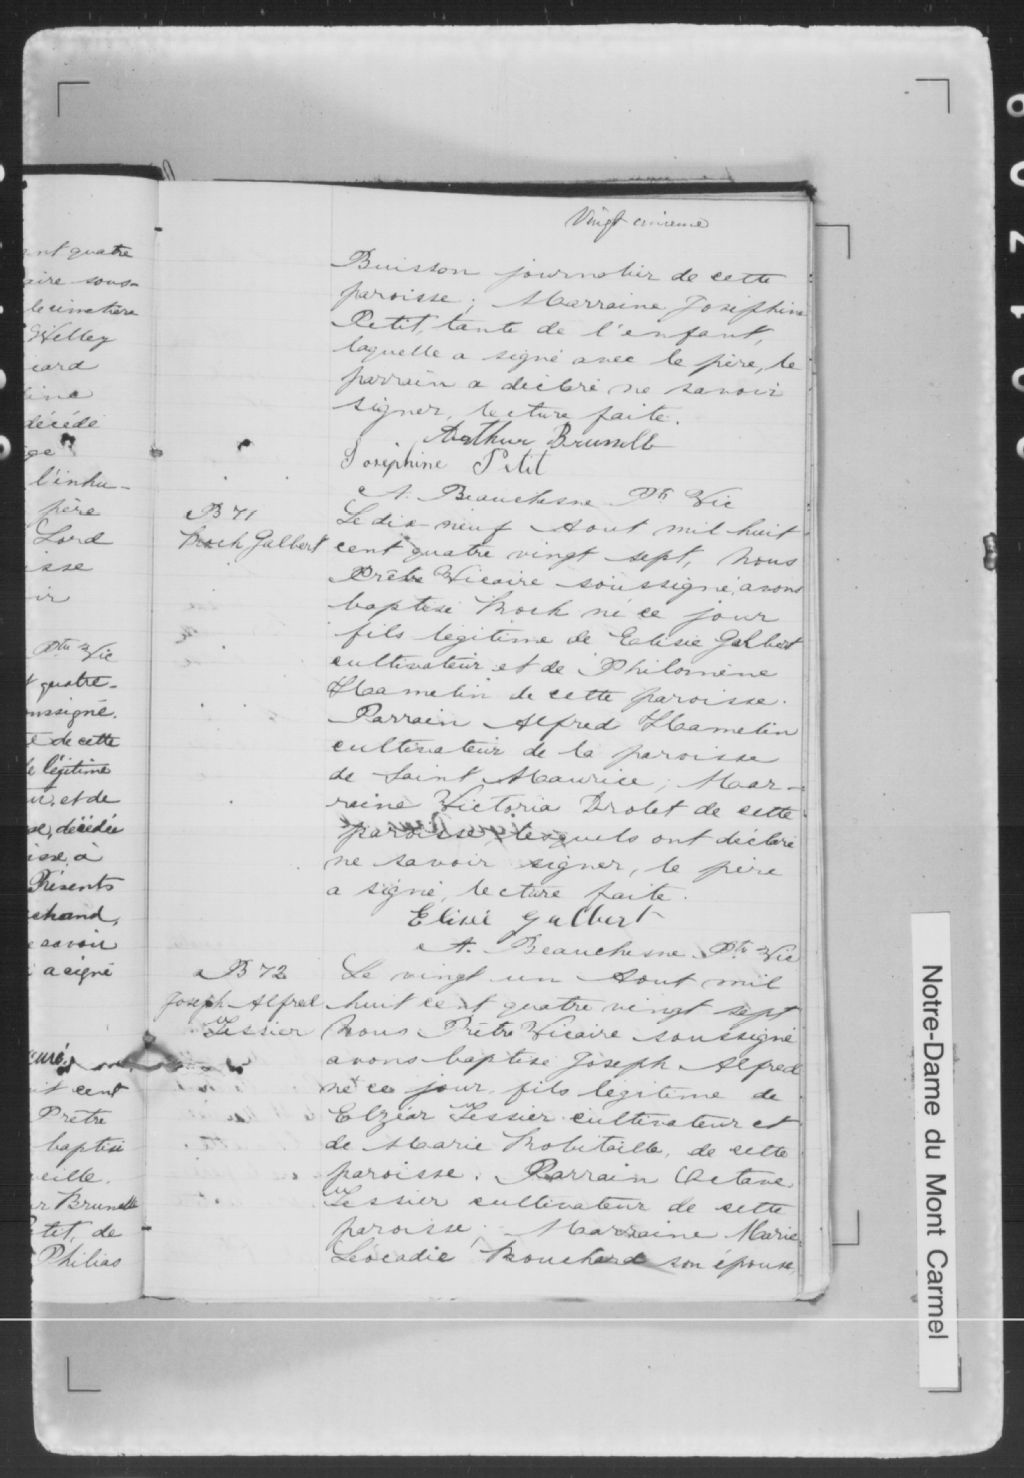 ent quatre
aire sous-
le cimetière
Welley
décédé
l'inhu-
père
Lord
isse
Ptre Vic
t quatre-
oussigné.
de cette
légitime
et de
décédée
isse, à
Présents
chand,
savoir
a signé
curé
cent
Prêtre
baptisé
r Brunelle
Petit, de
Philias
Vingt onzieme
Buisson journalier de cette
paroisse; Marraine Joséphine
Petit, tante de l'enfant,
laquelle a signé avec le père, le
parrain a déclaré ne savoir
signer, lecture faite.
Arthur Brunelle
Joséphine Petit
A. Beauchesne Ptr Vic
B 71
Roch Galbert
Le dix-neuf Aout mil huit
cent quatre vingt sept, Nous
Prêtre Vicaire soussigné, avons
baptisé Roch né ce jour
fils légitime de Elisée Galbert
cultivateur et de Philomène
Hamelin de cette paroisse.
Parrain Alfred Hamelin
cultivateur de la paroisse
de Saint Maurice; Mar-
raine Victoria Drolet de cette
paroisse, lesquels ont déclaré
ne savoir signer, le père
a signé, lecture faite.
Elisé Galbert
A. Beauchesne Ptr Vic
B 72
Joseph Alfred
Lessier
Le vingt un Aout mil
huit cent quatre vingt sept
Nous Prêtre Vicaire soussigné
avons baptisé Joseph Alfred
né ce jour fils légitime de
Elzéar Lessier cultivateur et
de Marie Robitaille, de cette
paroisse. Parrain Octave
Lessier cultivateur de cette
paroisse; Marraine Marie
Léocadie Bouchard son épouse,
Notre-Dame du Mont Carmel